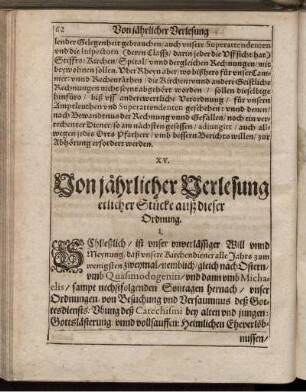 62 Von jährlicher Verlesung
lender Gelegenheit gebrauchen / auch vnsere Superattendenten
vnd die Inspectorn (deren Classs / darin jeder die Pfflicht hat)
Stiffts: Kirchen / Spital / vnnd dergleichen Rechnungen / mit
beywohnen sollen. Vber Rhein aber / wo bißhero für vnser Cam-
mer / vnnd Rechenräthen / die Kirchen vnnd andere Geistliche
Rechnungen nicht seynt abgehört worden / sollen dieselbige
hinfüro / biß vff anderwertliche Verordnung / für vnsern
Amptleuthen vnd Superattendenten geschehen: vnnd denen /
nach Bewandtnus der Rechnung vnnd Gefällen / noch ein ver-
rechneter Diener / so am nächsten gesessen / adiungirt / auch all-
wegen jedes Orts Pfarherr / vmb bessern Berichts willen / zur
Abhörung erfordert werden.
XV.
Von jährlicher Verlesung
etlicher Stücke auß dieser
Ordnung.
I.
SChließlich / ist vnser vnverlässiger Will vnnd
Meynung / daß vnsere Kirchendiener alle Jahrs zum
wenigsten zweymal / nemblich / gleich nach Ostern /
vmb Quasimodogeniti / vnd dann vmb Micha-
elis / sampt nechstfolgenden Sontagen hernach / vnser
Ordnungen / von Besuchung vnd Versaumnus deß Got-
tesdiensts: Vbung deß Catechismi bey alten vnd jungen:
Gotteslästerung / vnnd vollsauffen: Heimlichen Eheverlöb-
nussen /